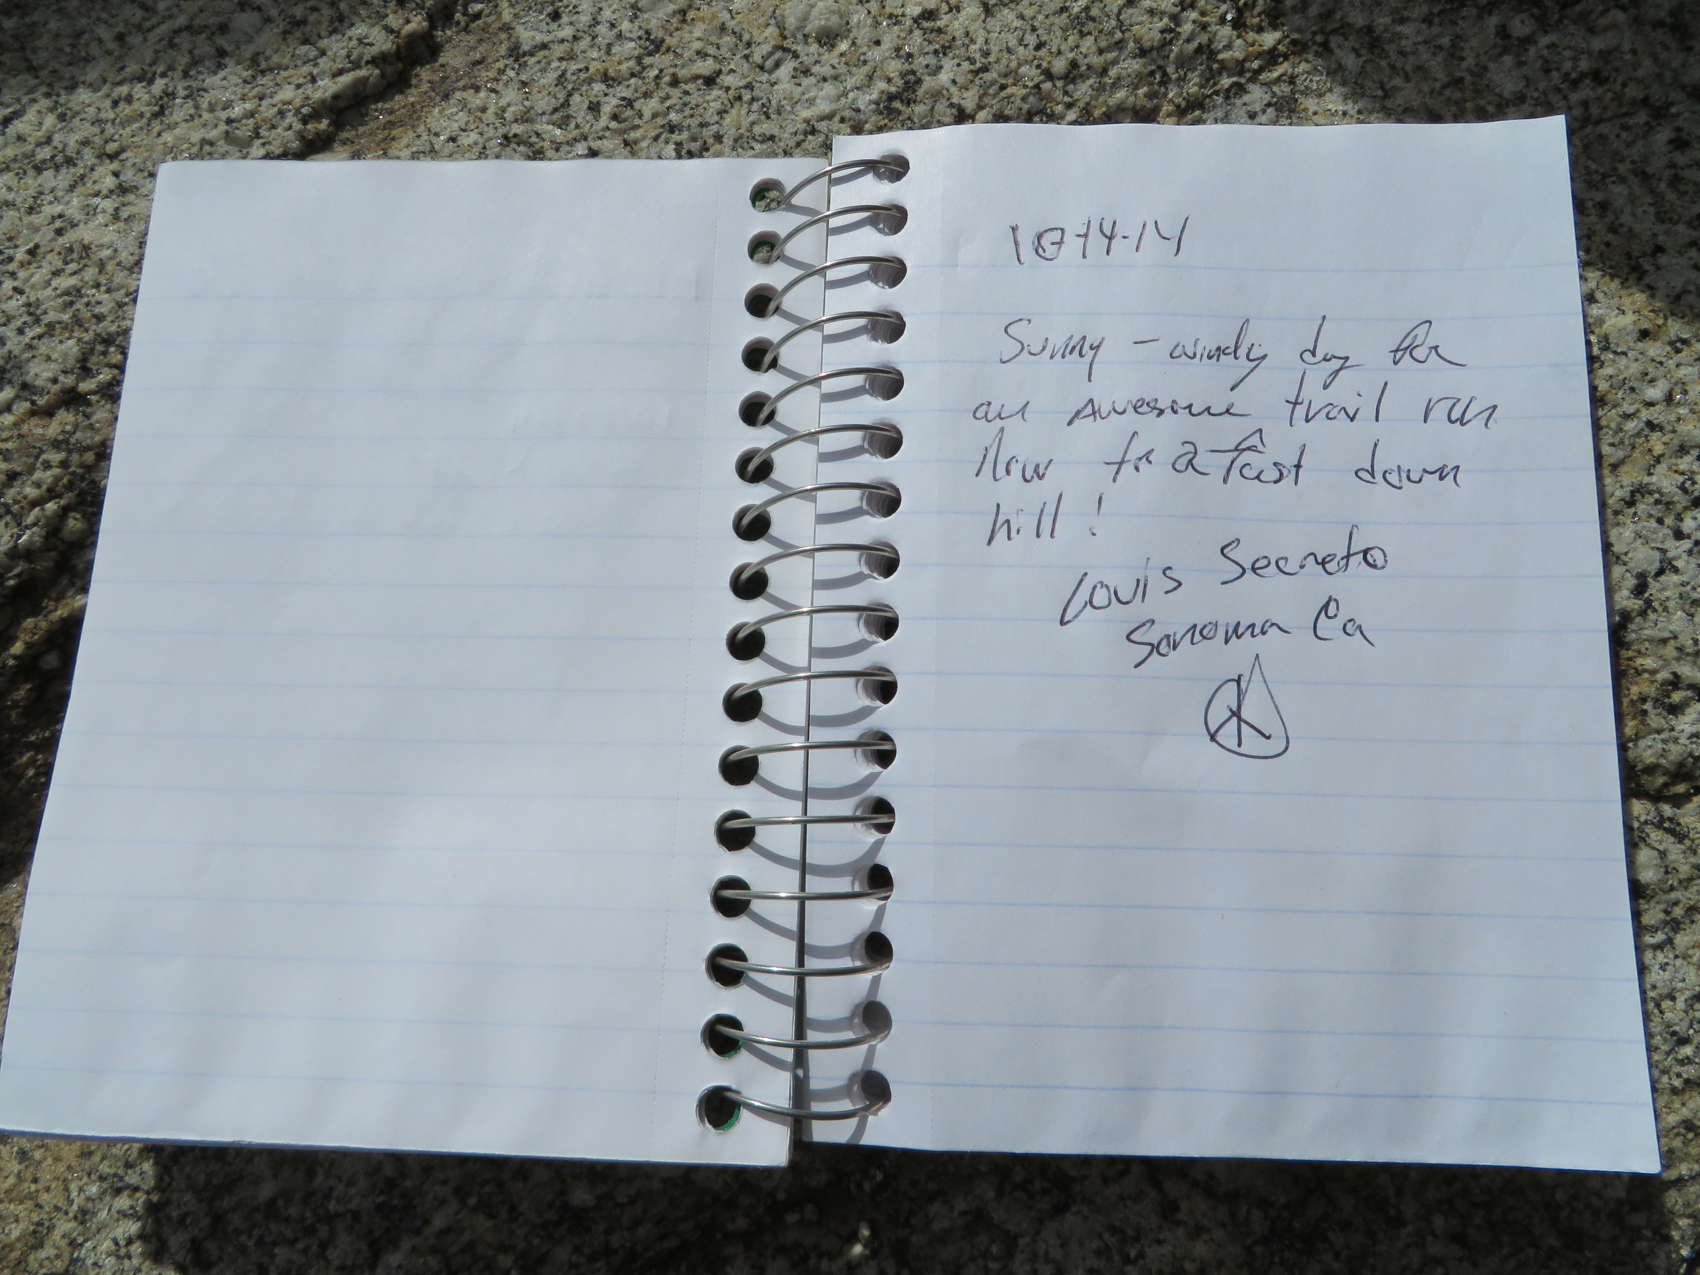 10-14-14
Sunny - windy day for
an awesome trail run
Now for a fast down
hill!
Louis Secreto
Sonoma Ca